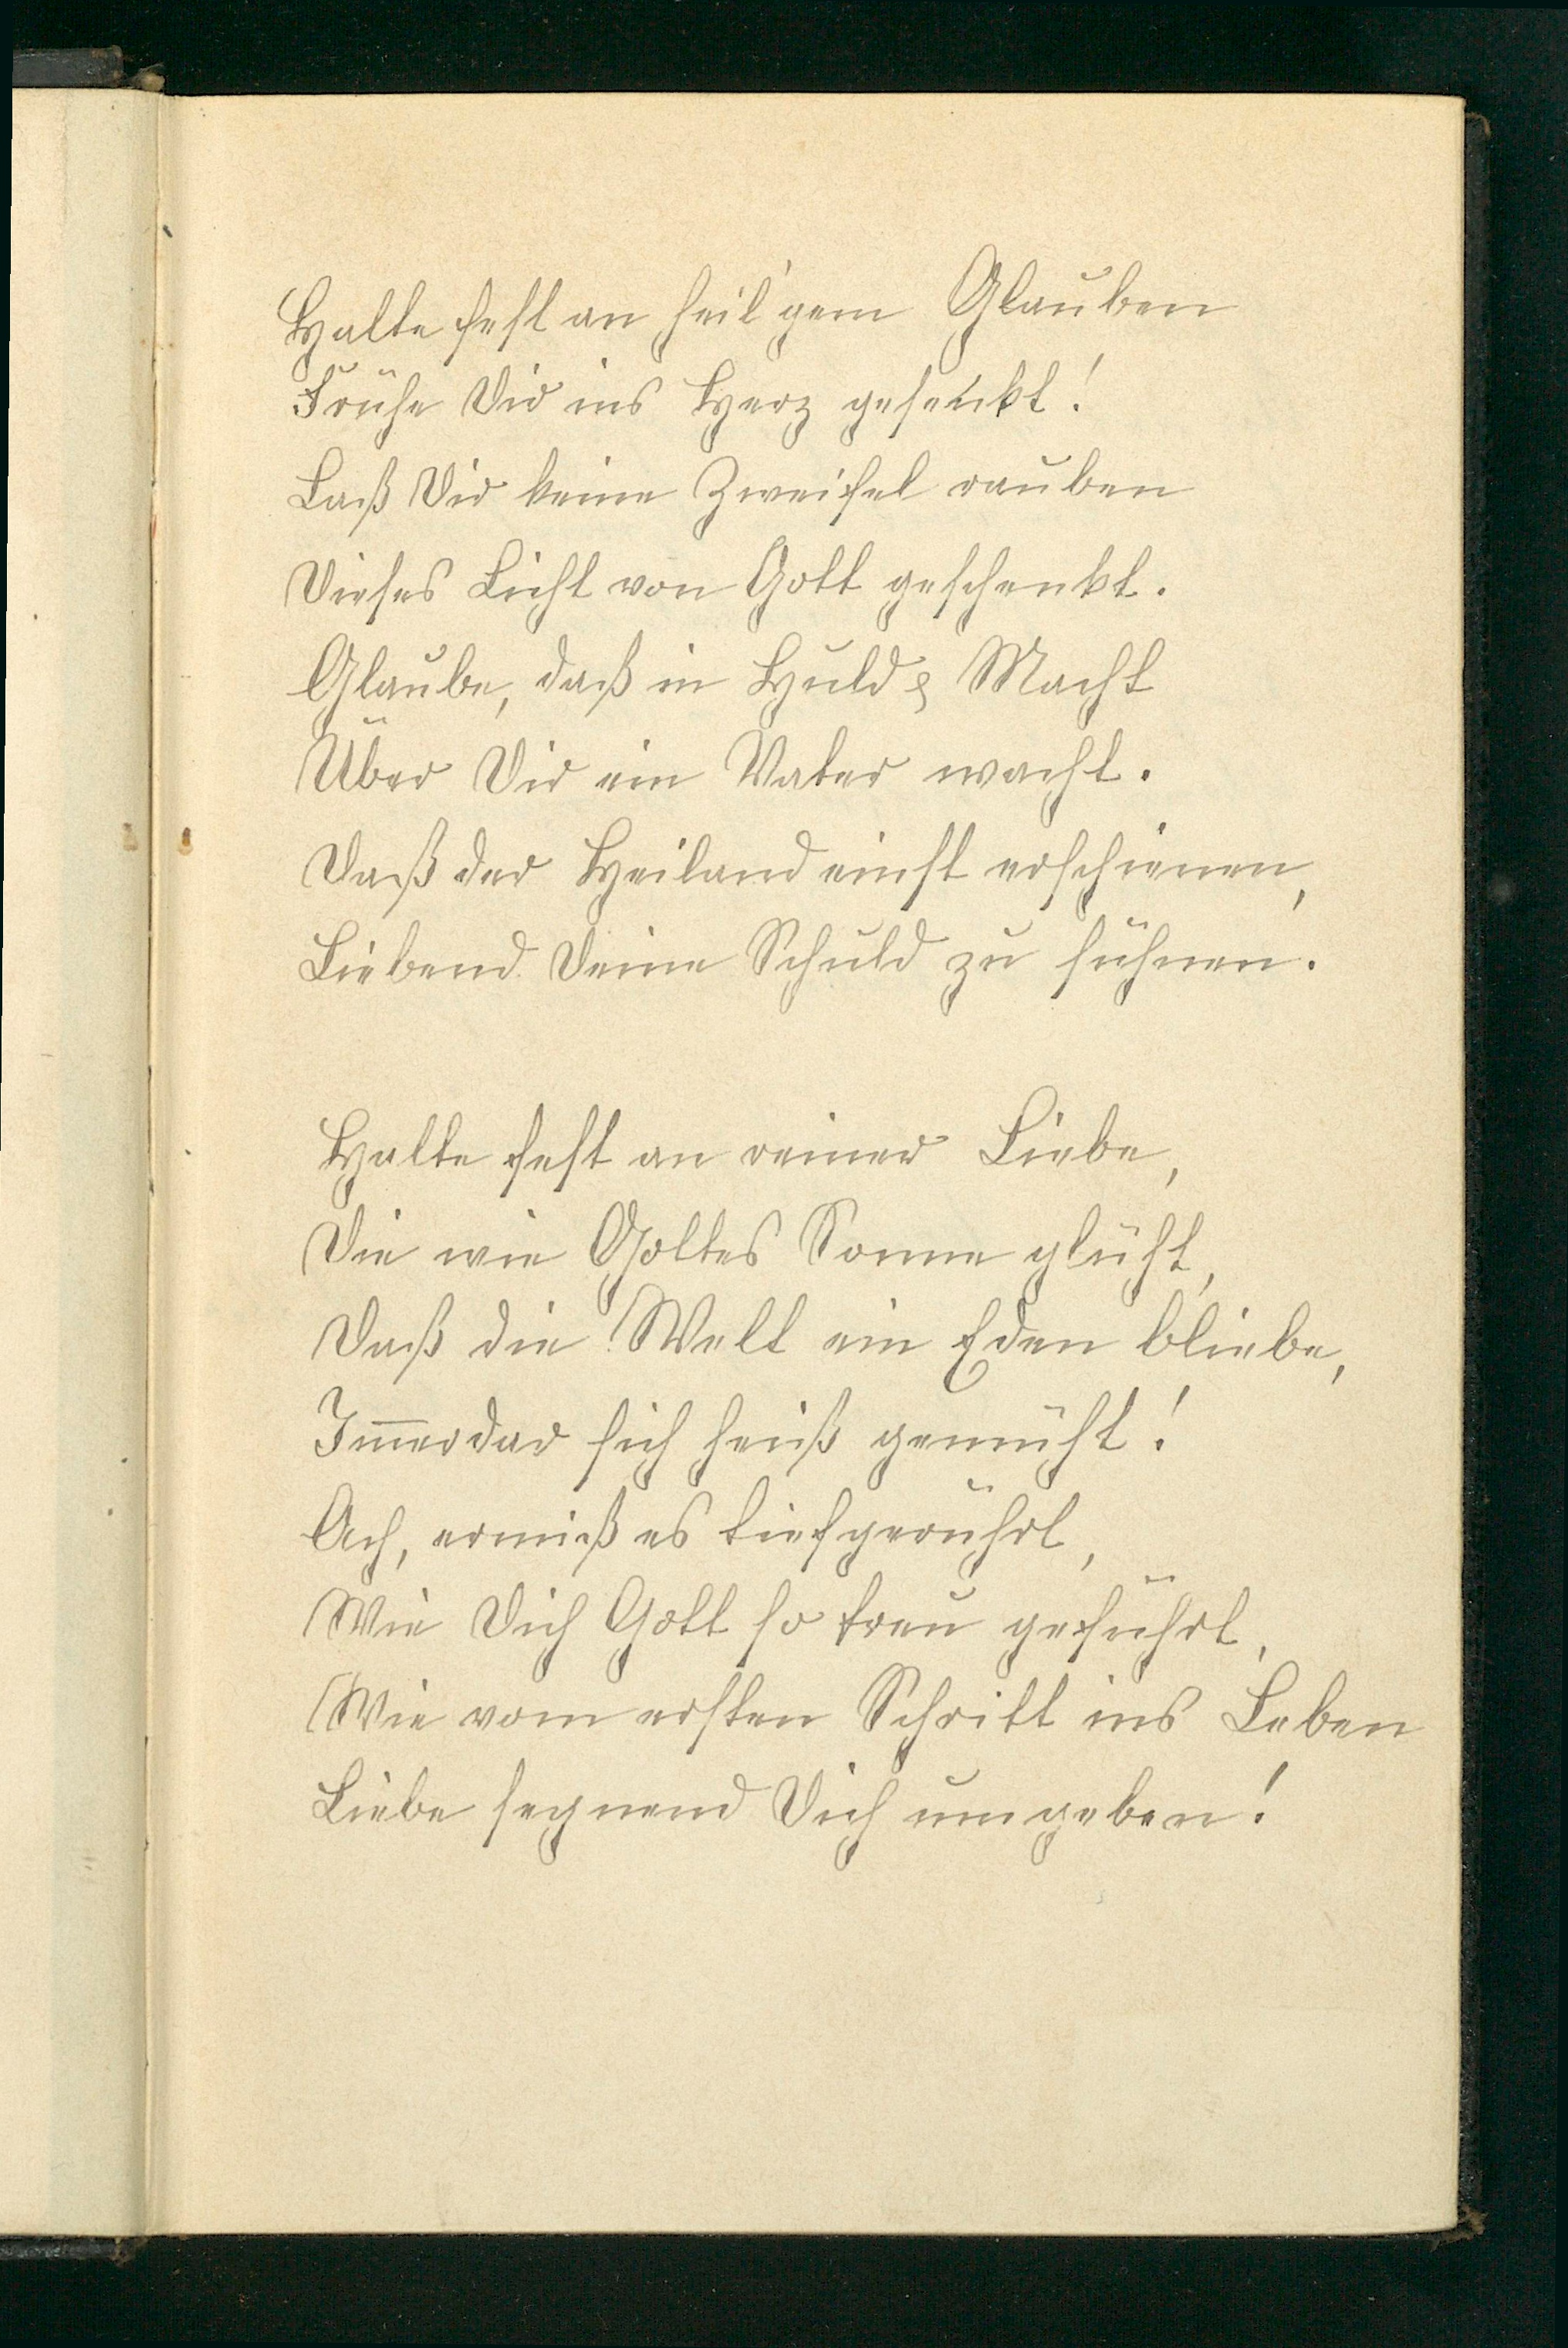 Halte fest an heil'gem Glauben
Frühe Dir ins Herz gesenkt!
Laß Dir keine Zweifel rauben
Dieses Licht von Gott geschenkt.
Glaube, daß in Huld & Macht
Über Dir ein Vater wacht.
Daß der Heiland einst erschienen,
Liebend Deine Schuld zu sühnen.
Halte fest an reiner Liebe,
Die wie Gottes Sonne glüht,
Daß die Welt ein Eden bliebe,
Im̅erdar sich heiß gemüht!
Ach, ermiß es tiefgerührt,
Wie Dich Gott so treu geführt,
Wie vom ersten Schritt ins Leben
Liebe segnend Dich umgeben!